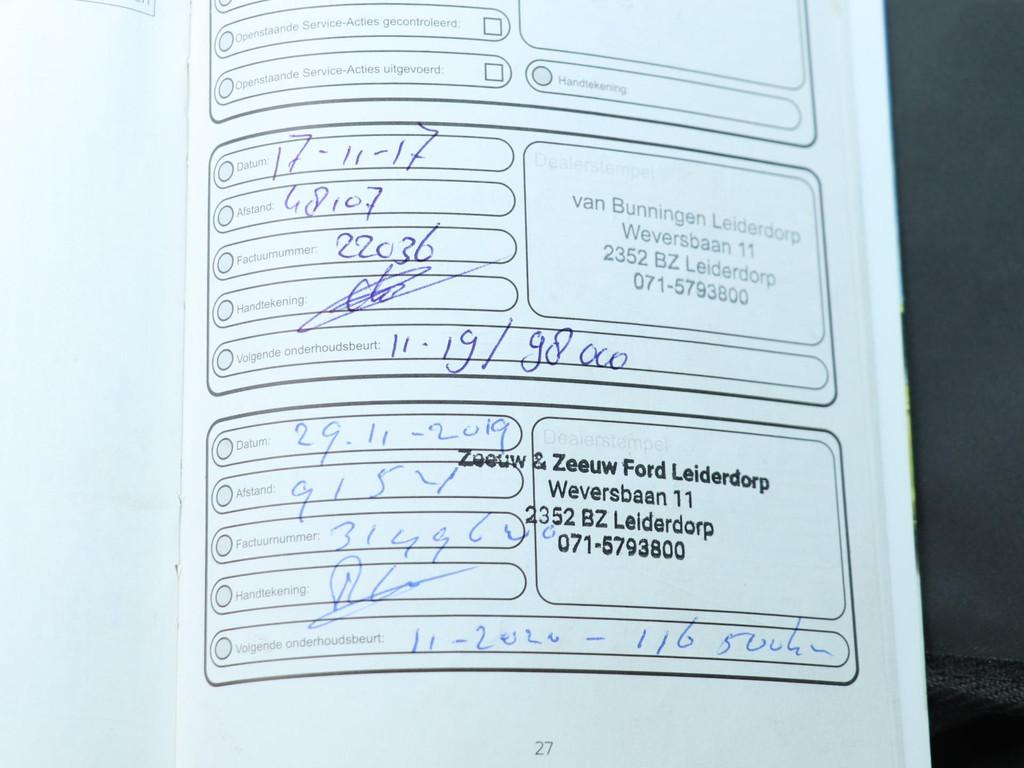 Openstaande Service-Acties gecontroleerd:
Openstaande Service-Acties uitgevoerd:
Handtekening
Datum: 17-11-17
Afstand: 48107
Factuurnummer: 22036
Handtekening:
Volgende onderhoudsbeurt: 11-19/98000
Dealerstempel
van Bunningen Leiderdorp
Weversbaan 11
2352 BZ Leiderdorp
071-5793800
Datum: 29.11-2019
Afstand:
Factuurnummer:
Handtekening:
Volgende onderhoudsbeurt: 11-2020 - 116 500km
Dealerstempel
Zeeuw & Zeeuw Ford Leiderdorp
Weversbaan 11
2352 BZ Leiderdorp
071-5793800
27